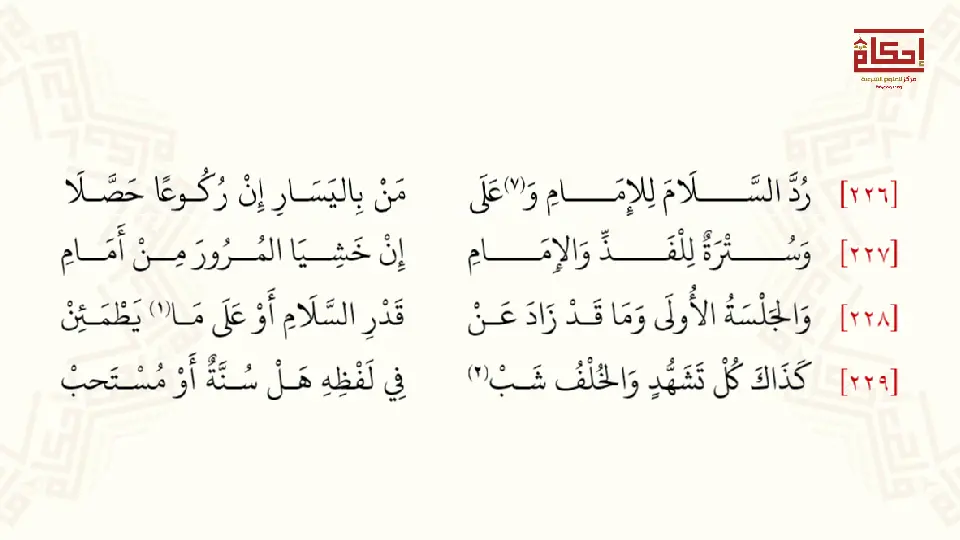 إحكام
مركز للعلوم الشرعية
[٢٢٦] رُدَّ السَّـــلَامَ لِلإِمَـــامِ وَ(٧)عَلَى مَنْ بِاليَسَارِ إِنْ رُكُوعًا حَصَّلَا
[٢٢٧] وَسُـــتْرَةٌ لِلْفَـــذِّ وَالإِمَـــامِ إِنْ خَشِيَا المُرُورَ مِنْ أَمَامِ
[٢٢٨] وَالجَلْسَةُ الأُولَى وَمَا قَدْ زَادَ عَنْ قَدْرِ السَّلَامِ أَوْ عَلَى مَا(١) يَطْمَئِنْ
[٢٢٩] كَذَاكَ كُلْ تَشَهُّدٍ وَالخُلْفُ شَبْ(٢) فِي لَفْظِهِ هَلْ سُنَّةٌ أَوْ مُسْتَحبْ